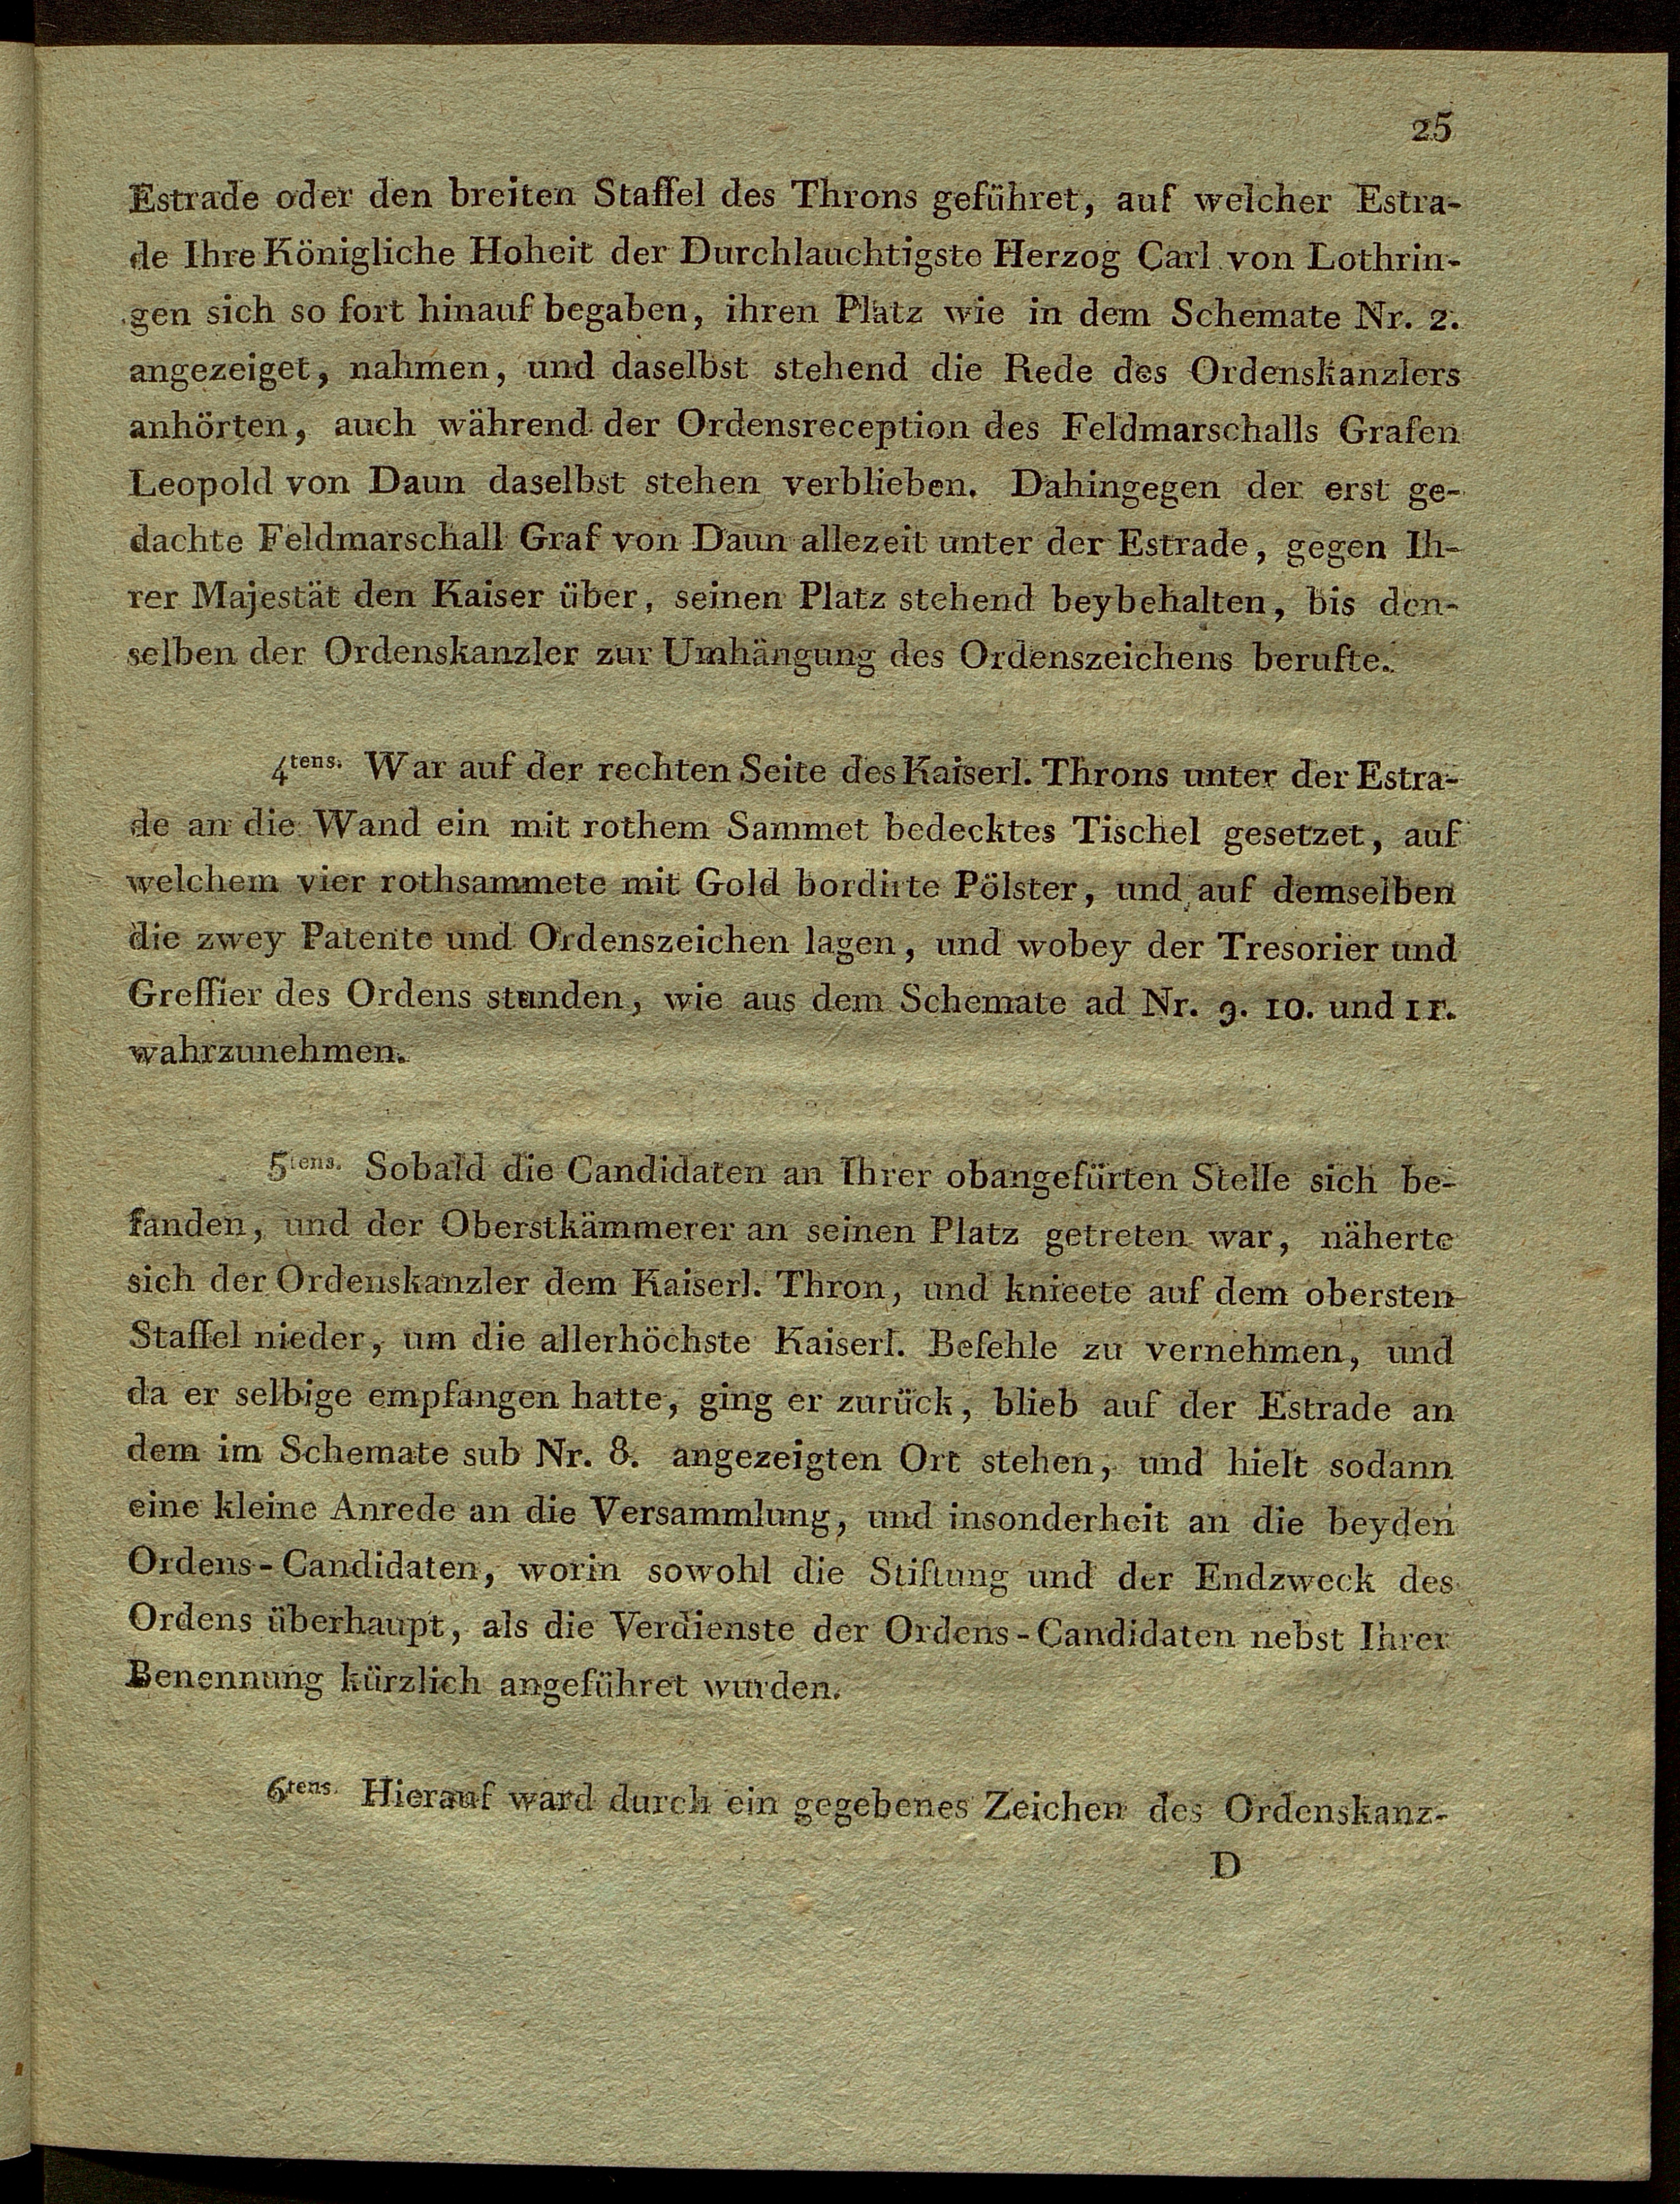 25
Estrade oder den breiten Staffel des Throns geführet, auf welcher Estra-
de Ihre Königliche Hoheit der Durchlauchtigste Herzog Carl von Lothrin-
gen sich so fort hinauf begaben, ihren Platz wie in dem Schemate Nr. 2.
angezeiget, nahmen, und daselbst stehend die Rede des Ordenskanzlers
anhörten, auch während der Ordensreception des Feldmarschalls Grafen
Leopold von Daun daselbst stehen verblieben. Dahingegen der erst ge-
dachte Feldmarschall Graf von Daun allezeit unter der Estrade, gegen Ih-
rer Majestät den Kaiser über, seinen Platz stehend beybehalten, bis den-
selben der Ordenskanzler zur Umhängung des Ordenszeichens berufte.
4tens. War auf der rechten Seite des Kaiserl. Throns unter der Estra-
de an die Wand ein mit rothem Sammet bedecktes Tischel gesetzet, auf
welchem vier rothsammete mit Gold bordirte Pölster, und auf demselben
die zwey Patente und Ordenszeichen lagen, und wobey der Tresorier und
Greffier des Ordens stunden, wie aus dem Schemate ad Nr. 9. 10. und 11.
wahrzunehmen.
5tens. Sobald die Candidaten an Ihrer obangefürten Stelle sich be-
fanden, und der Oberstkämmerer an seinen Platz getreten war, näherte
sich der Ordenskanzler dem Kaiserl. Thron, und knieete auf dem obersten
Staffel nieder, um die allerhöchste Kaiserl. Befehle zu vernehmen, und
da er selbige empfangen hatte, ging er zurück, blieb auf der Estrade an
dem im Schemate sub Nr. 8. angezeigten Ort stehen, und hielt sodann
eine kleine Anrede an die Versammlung, und insonderheit an die beyden
Ordens-Candidaten, worin sowohl die Stiftung und der Endzweck des
Ordens überhaupt, als die Verdienste der Ordens-Candidaten nebst Ihrer
Benennung kürzlich angeführet wurden.
6tens. Hierauf ward durch ein gegebenes Zeichen des Ordenskanz-
D